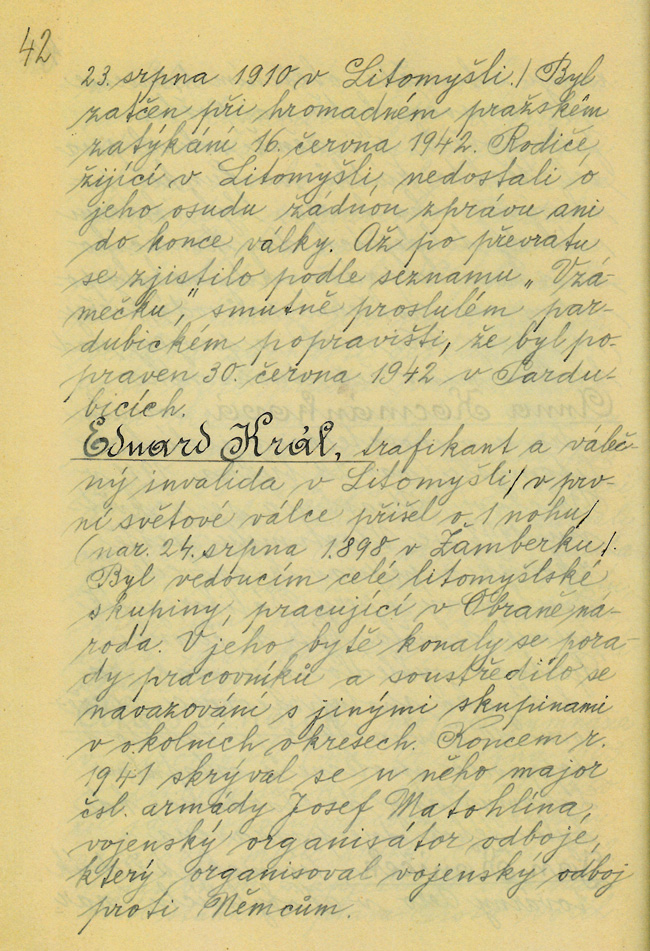 42
23. srpna 1910 v Litomyšli./ Byl
zatčen při hromadném pražském
zatýkání 16. června 1942. Rodiče,
žijící v Litomyšli, nedostali o
jeho osudu žádnou zprávu ani
do konce války. Až po převratu
se zjistilo podle seznamu „Vzá-
mečku,“ smutně proslulém par-
dubickém popravišti, že byl po-
praven 30. června 1942 v Pardu-
bicích.
Eduard Král, trafikant a váleč-
ný invalida v Litomyšli / v prv-
ní světové válce přišel o 1 nohu /
(nar. 24. srpna 1898 v Žamberku/.
Byl vedoucím celé litomyšlské
skupiny, pracující v Obraně ná-
roda. V jeho bytě konaly se pora-
dy pracovníků a soustředilo se
navazování s jinými skupinami
v okolních okresech. Koncem r.
1941 skrýval se u něho major
čsl. armády Josef Matohlína,
vojenský organisátor odboje,
který organisoval vojenský odboj
proti Němcům.